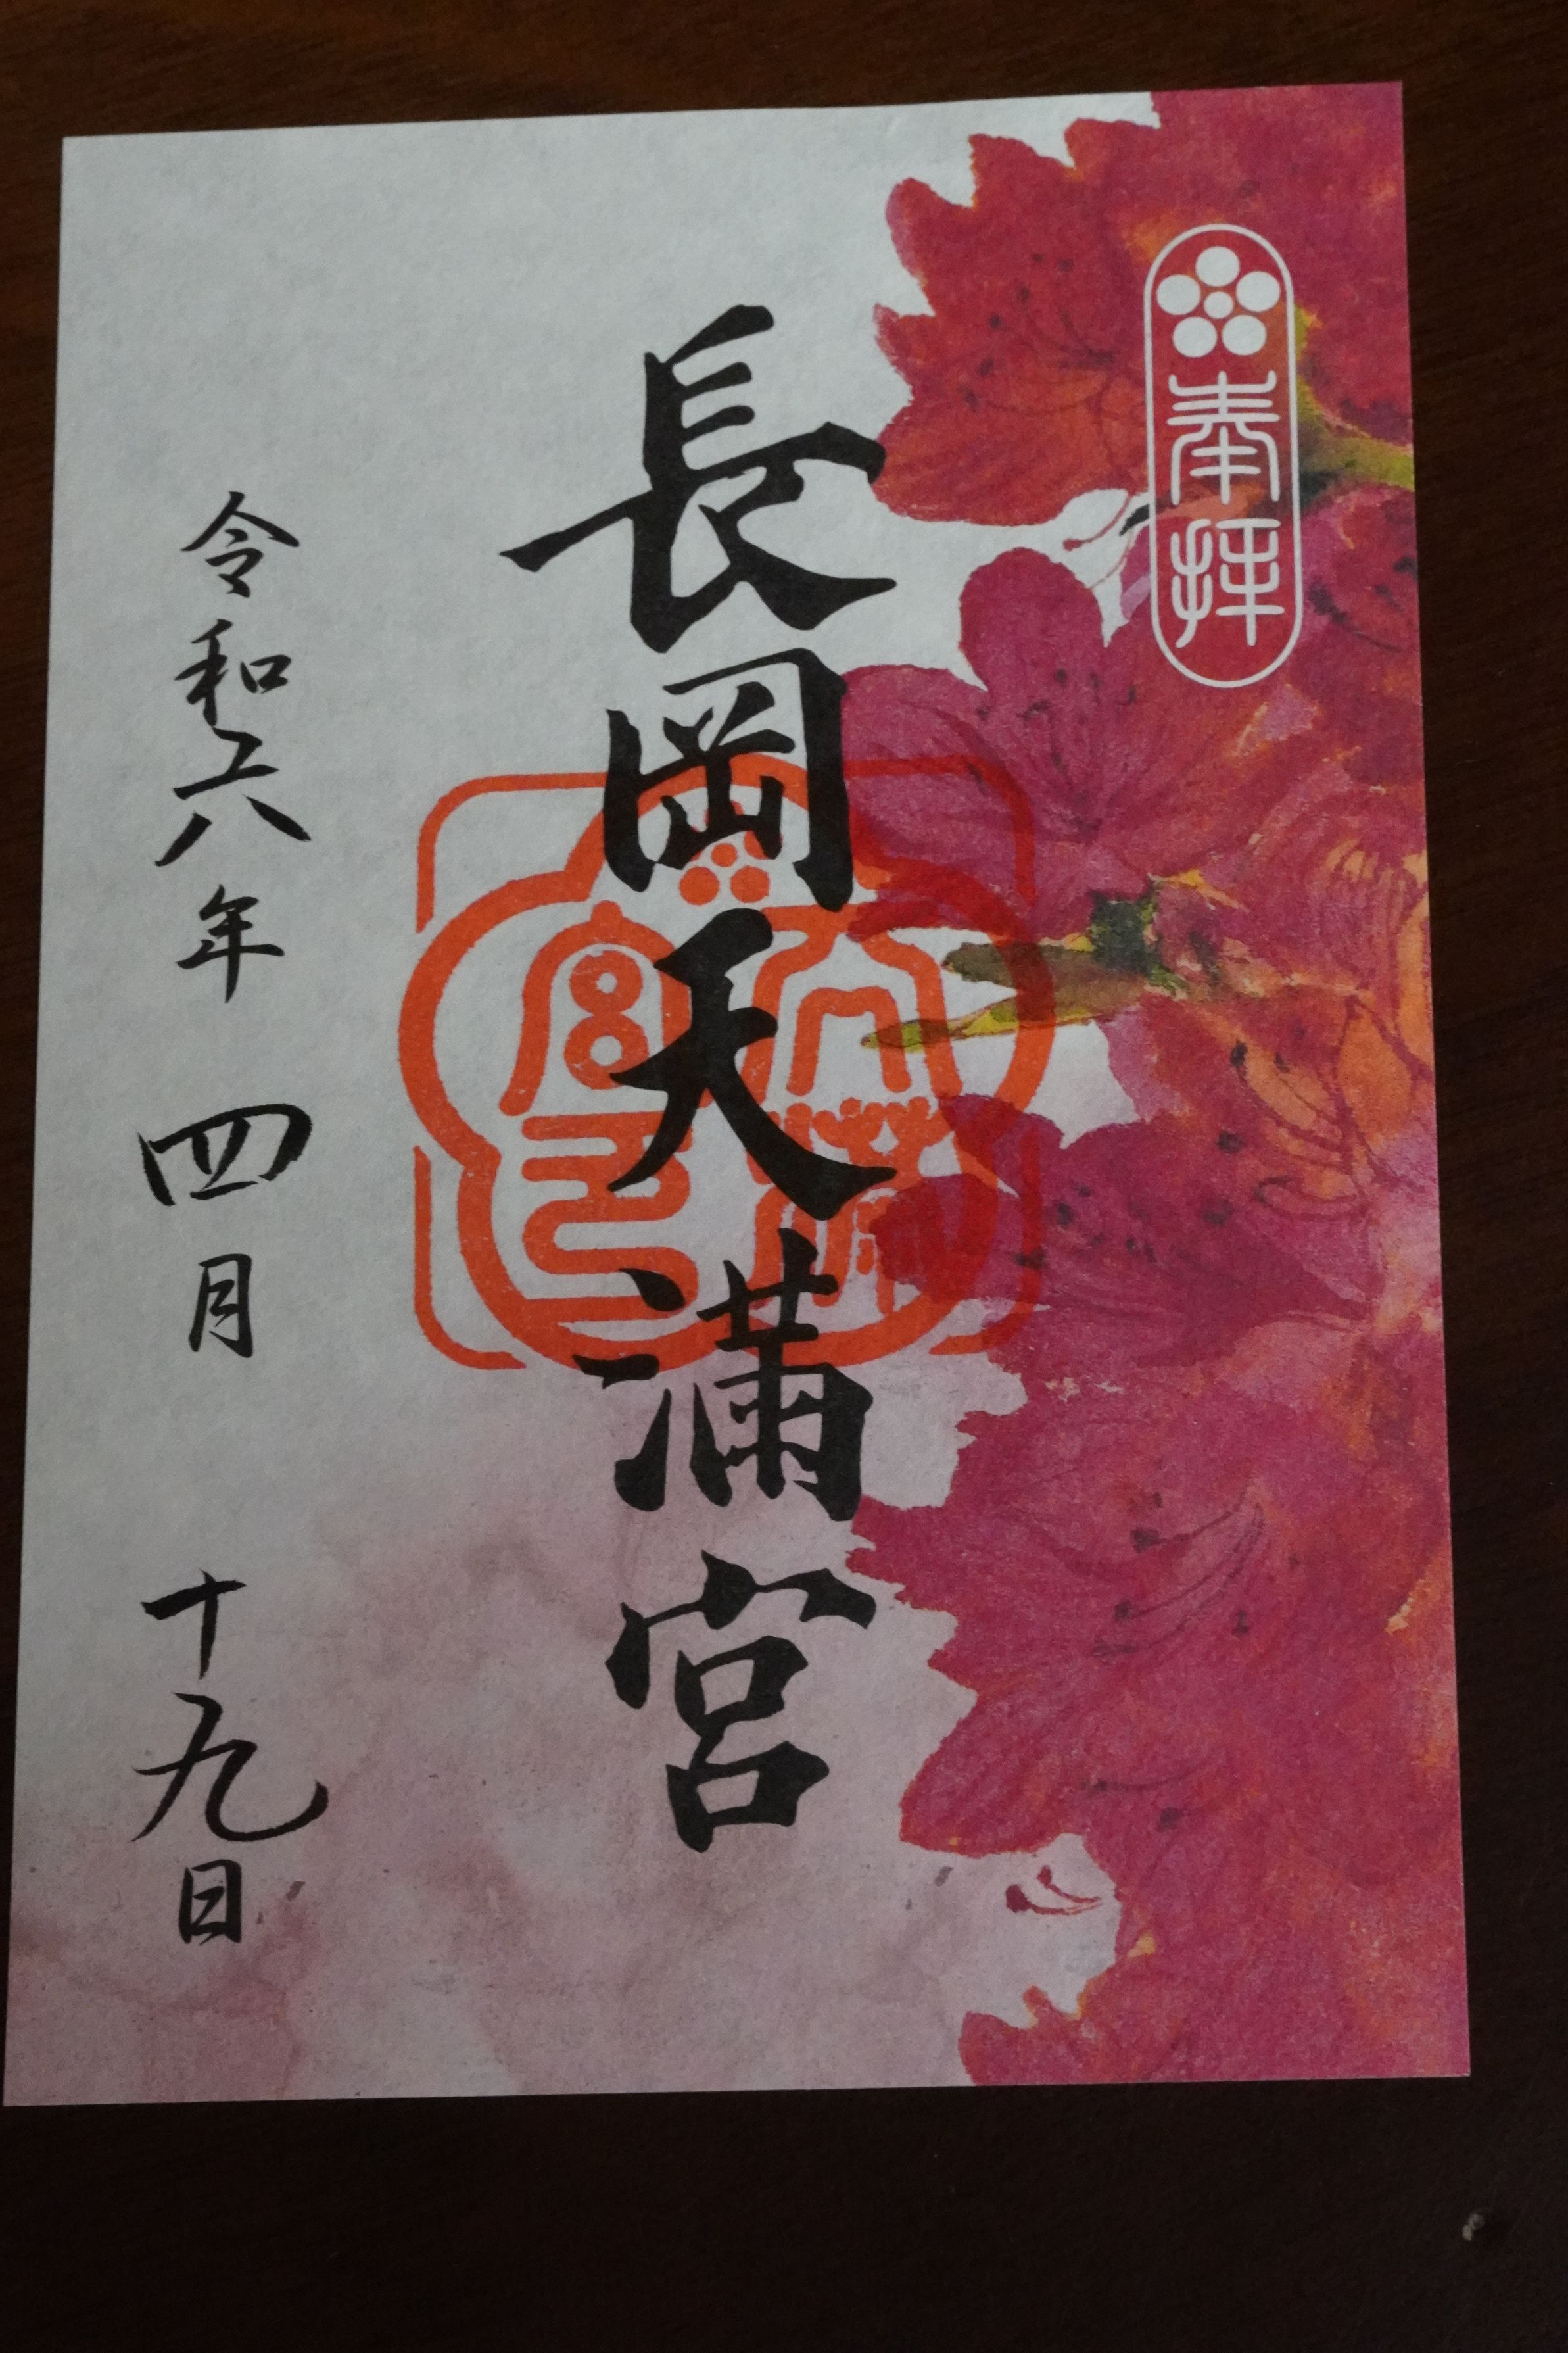 奉拝
長岡天満宮
令和六年 四月 十九日